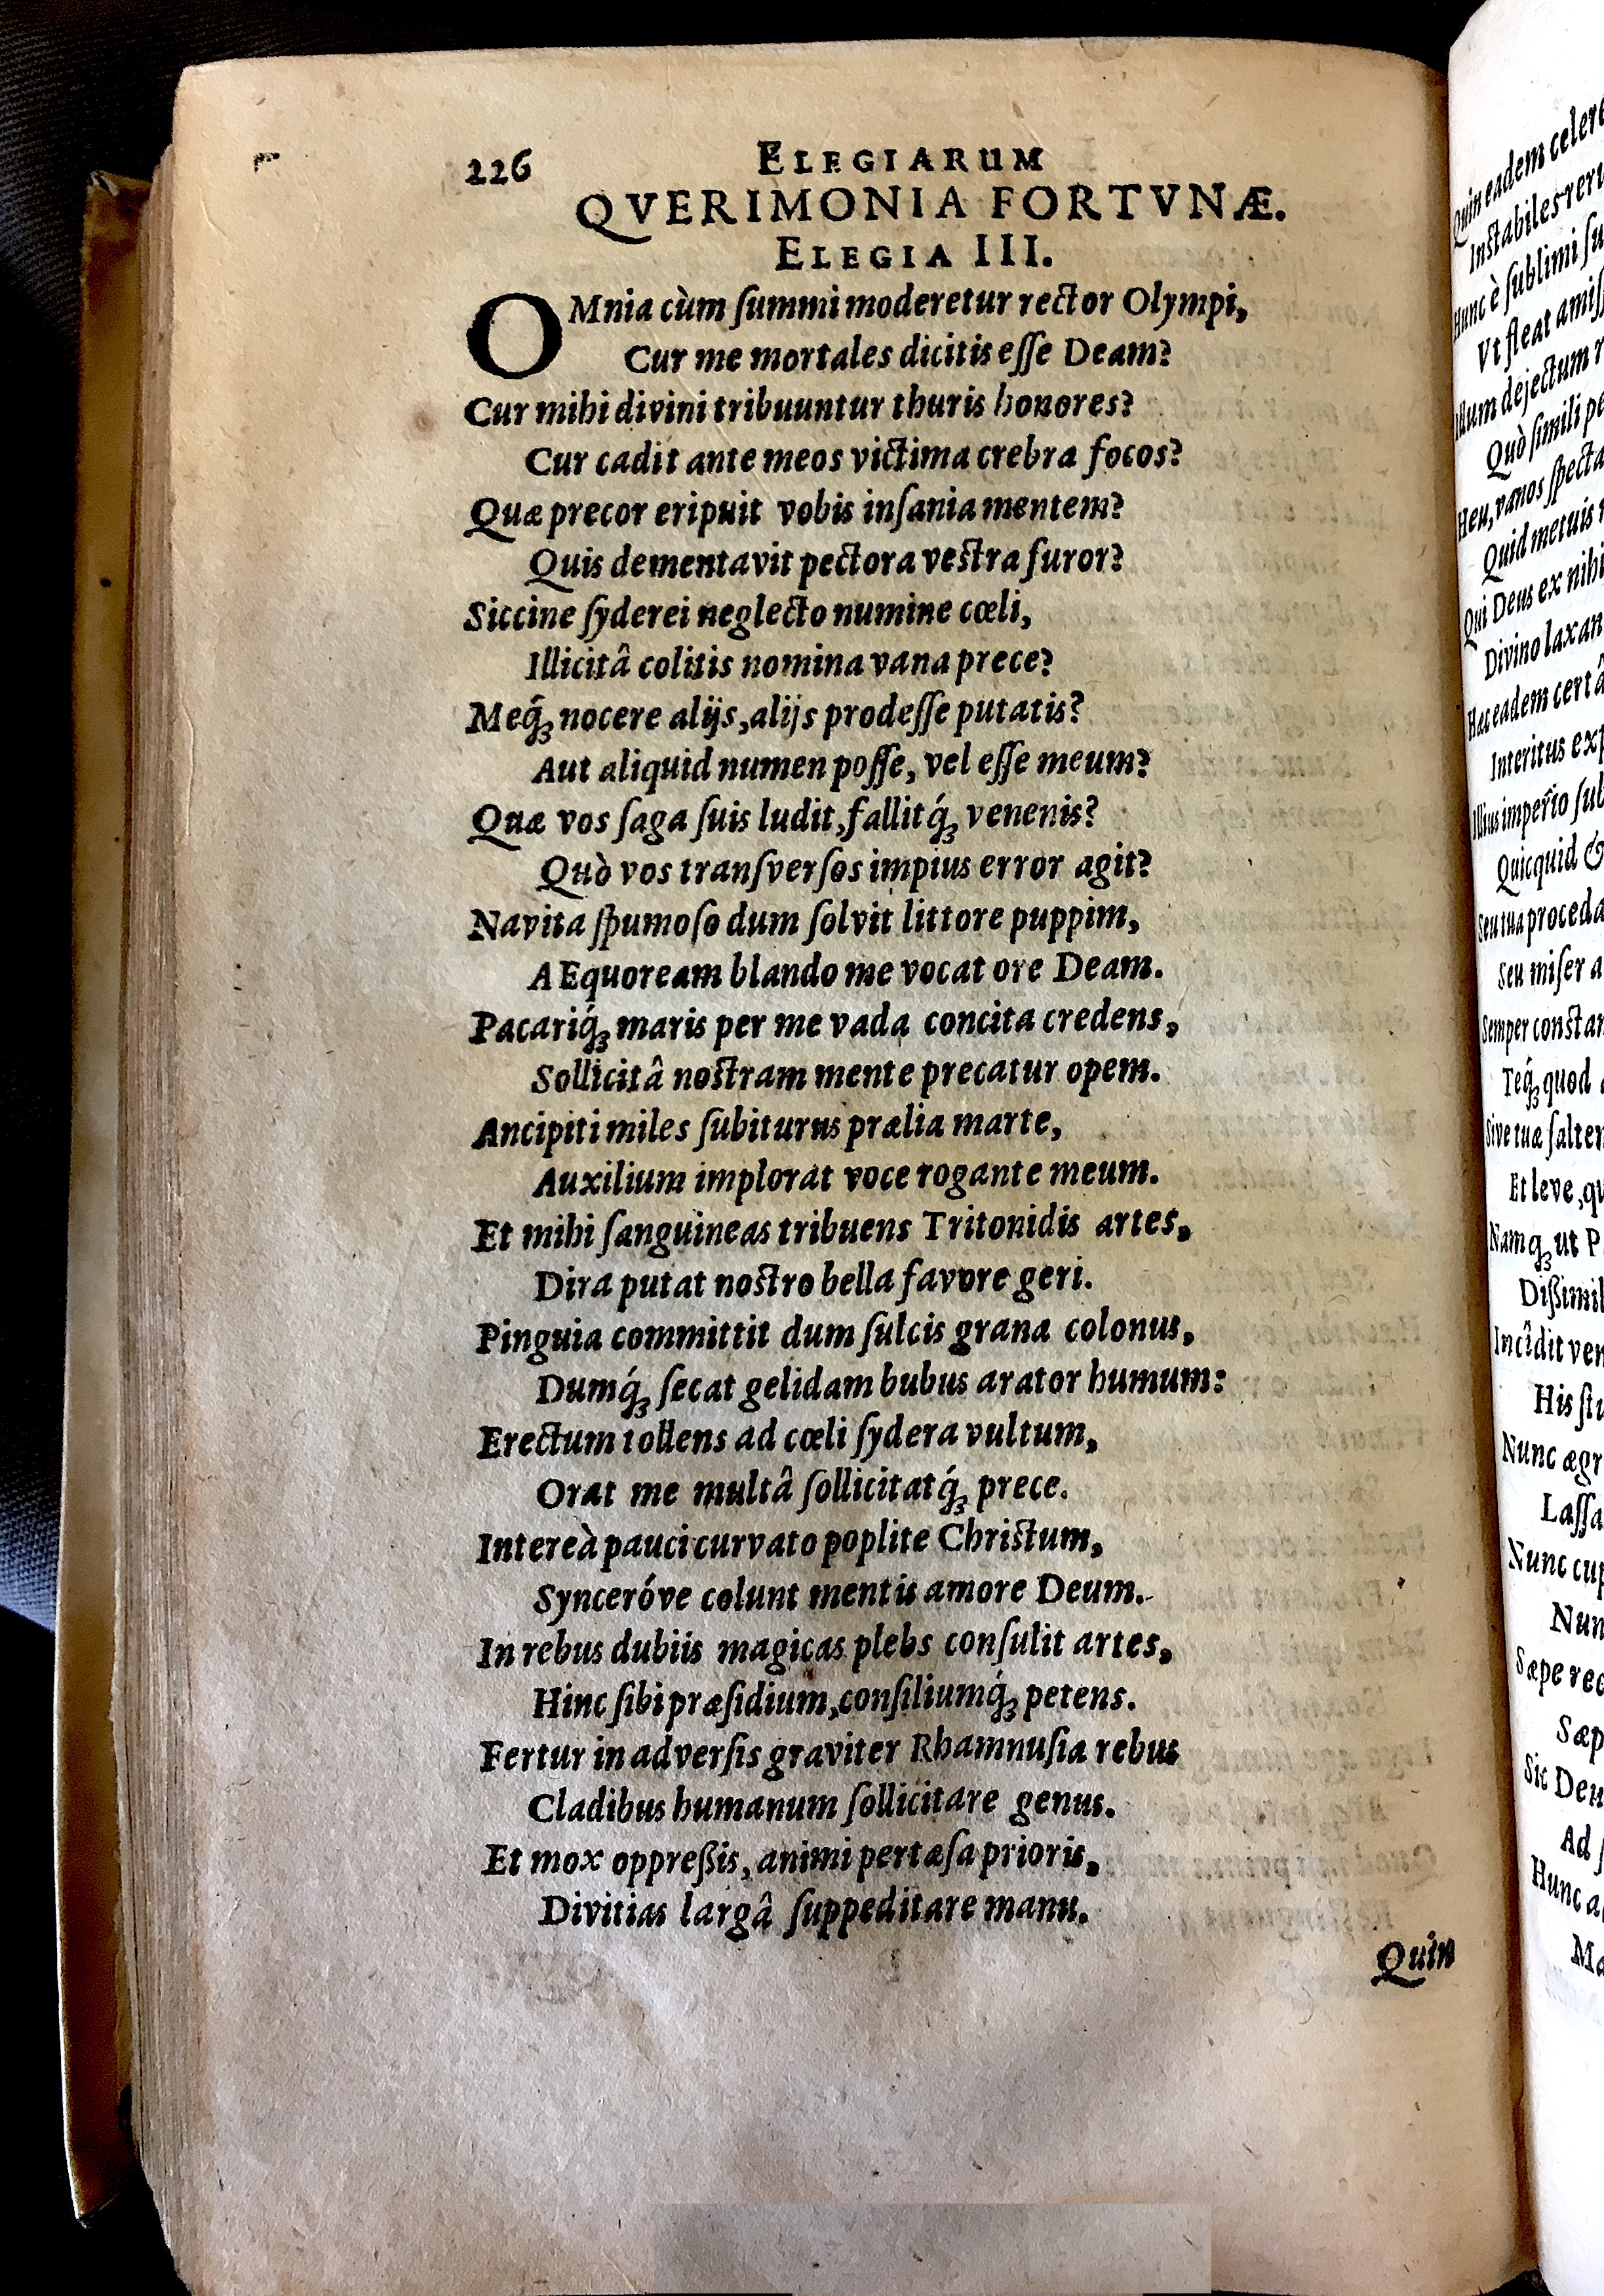 226 ELEGIARUM
QVERIMONIA FORTVNÆ.
ELEGIA III.
OMnia cùm ſummi moderetur rector Olympi,
Cur me mortales dicitis eſſe Deam?
Cur mihi divini tribuuntur thuris honores?
Cur cadit ante meos victima crebra focos?
Quæ precor eripuit vobis inſania mentem?
Quis dementavit pectora veſtra furor?
Siccine ſyderei neglecto numine cœli,
Illicitâ colitis nomina vana prece?
Meq́ꝫ nocere alijs, alijs prodeſſe putatis?
Aut aliquid numen poſſe, vel eſſe meum?
Quæ vos ſaga ſuis ludit, fallitq́ꝫ venenis?
Quò vos tranſverſos impius error agit?
Navita ſpumoſo dum ſolvit littore puppim,
AEquoream blando me vocat ore Deam.
Pacariq́ꝫ maris per me vada concita credens,
Sollicitâ noſtram mente precatur opem.
Ancipiti miles ſubiturus prælia marte,
Auxilium implorat voce rogante meum.
Et mihi ſanguineas tribuens Tritonidis artes,
Dira putat noſtro bella favore geri.
Pinguia committit dum ſulcis grana colonus,
Dumq́ꝫ ſecat gelidam bubus arator humum:
Erectum tollens ad cœli ſydera vultum,
Orat me multâ ſollicitatq́ꝫ prece.
Intereà pauci curvato poplite Chriſtum,
Synceróve colunt mentis amore Deum.
In rebus dubiis magicas plebs conſulit artes,
Hinc ſibi præſidium, conſiliumq́ꝫ petens.
Fertur in adverſis graviter Rhamnuſia rebus
Cladibus humanum ſollicitare genus.
Et mox oppreßis, animi pertæſa prioris,
Divitias largâ ſuppeditare manu.
Quin
Quin eadem celer
Inſtabiles rer
Hunc è ſublimi ſu
Vt fleat amiſ
Illum dejectum r
Quò ſimili pe
Heu, vanos ſpecta
Quid metuis
Qui Deus ex nihi
Divino laxan
Hac eadem certâ
Interitus exp
Illius imperio ſub
Quicquid &
Seu tua proceda
Seu miſer a
Semper conſtan
Teq́ꝫ quod
Sive tuæ ſalte
Et leve, qu
Namqꝫ ut P
Dißimil
Incîdit ver
His ſtu
Nunc ægr
Laſſa
Nunc cup
Nun
Sæpe rec
Sæp
Sic Deu
Ad ſ
Hunc a
Ma